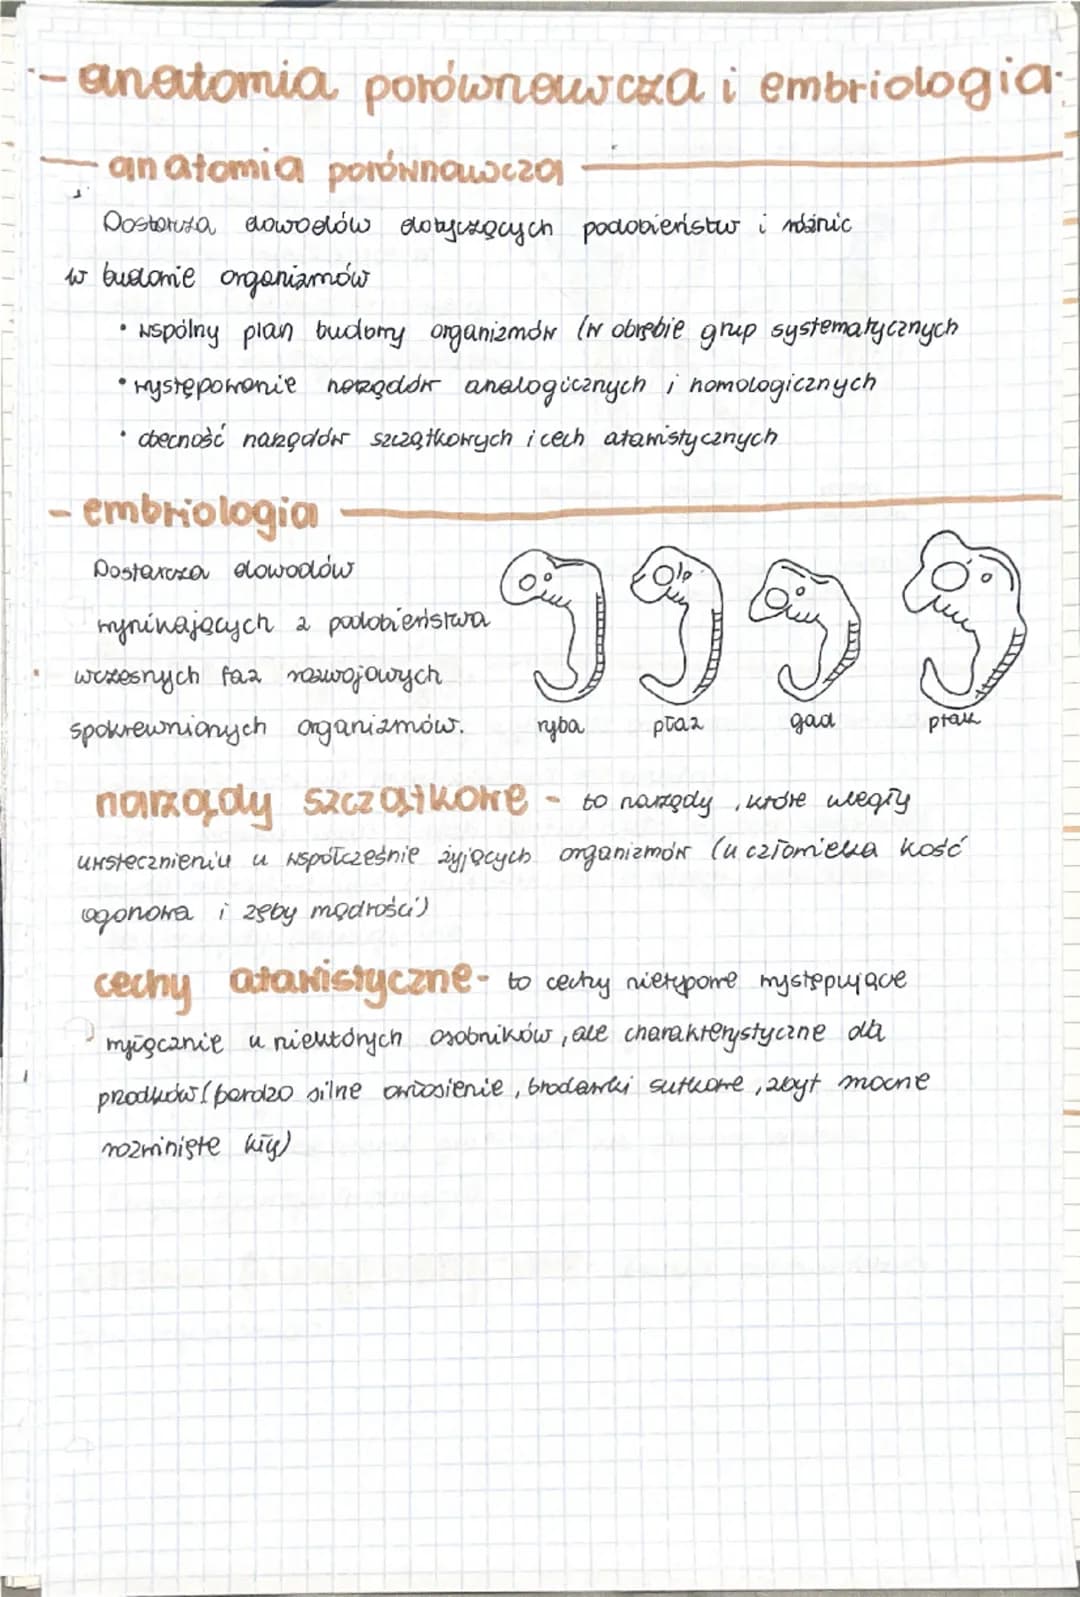 - anatomia porównawcza i embriologia -
anatomia porównawcza
Dostarcza dowodów dotyczących podobieństw i różnic
w budowie organizmów
• wspólny plan budowy organizmów (w obrębie grup systematycznych
• występowanie narządów analogicznych i homologicznych
• obecność narządów szczątkowych i cech atawistycznych
- embriologia
Dostarcza dowodów
wynikających z podobieństwa
wczesnych faz rozwojowych
spokrewnionych organizmów.
ryba płaz gad ptak
narządy szczątkowe - to narządy, które uległy
uwstecznieniu u współcześnie żyjących organizmów (u człowieka kość
ogonowa i zęby mądrości)
cechy atawistyczne - to cechy nietypowe występujące
wyłącznie u niektórych osobników, ale charakterystyczne dla
przodków (bardzo silne owłosienie, brodawki sutkowe, zbyt mocne
rozwinięte kły)